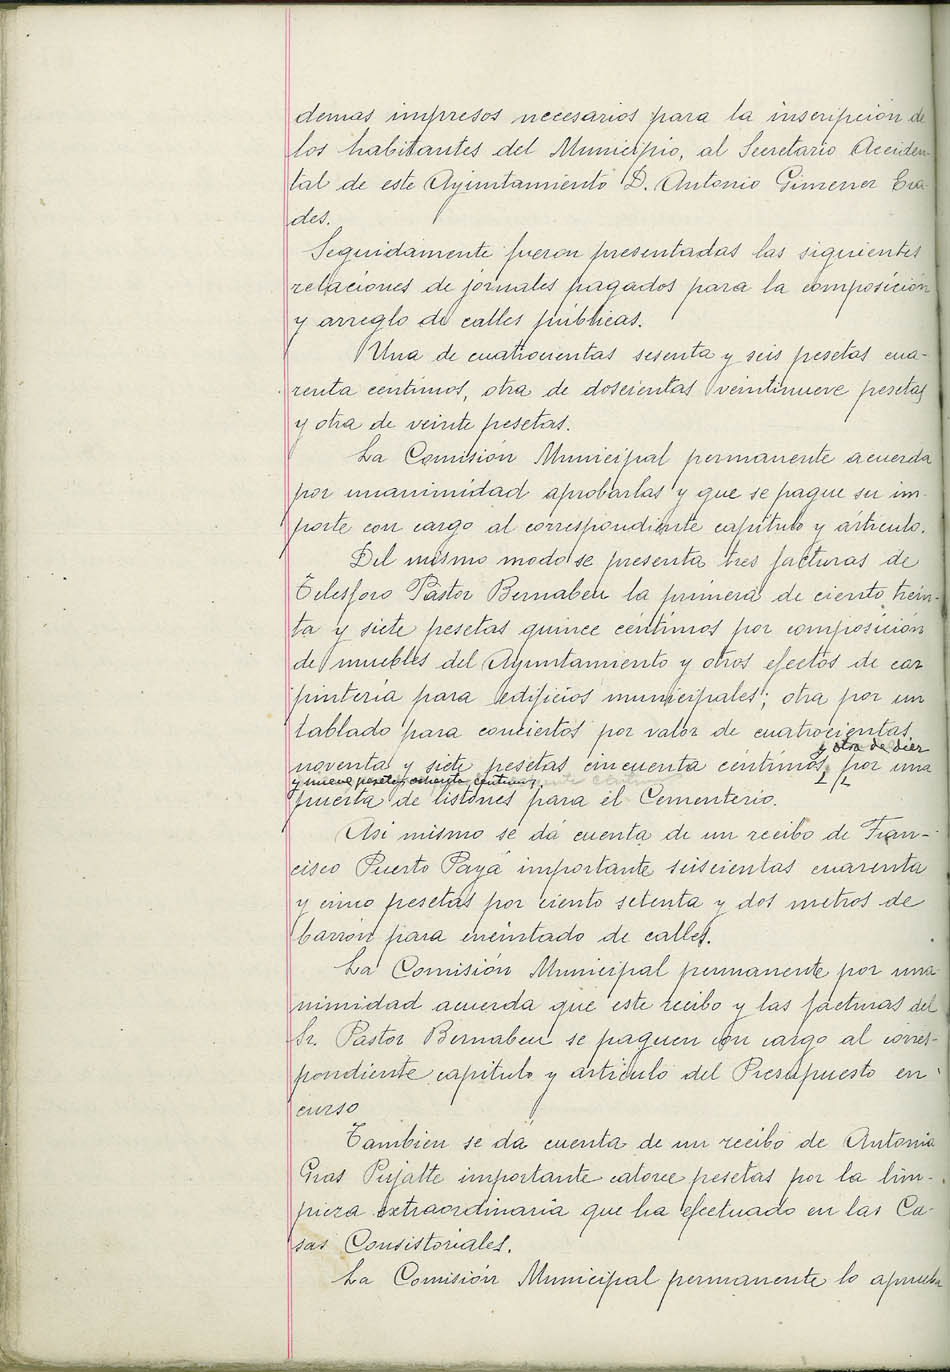 demas impresos necesarios para la inscripción de
los habitantes del Municipio, al Secretario Acciden-
tal de este Ayuntamiento D. Antonio Gimenez Cra-
des.
Seguidamente fueron presentadas las siguientes
relaciones de jornales pagados para la composición
y arreglo de calles públicas.
Una de cuatrocientas sesenta y seis pesetas cua-
renta centimos, otra de doscientas veintinueve pesetas
y otra de veinte pesetas.
La Comisión Municipal permanente acuerda
por unanimidad aprobarlas y que se pague su im-
porte con cargo al correspondiente capítulo y artículo.
Del mismo modo se presenta tres facturas de
Telesforo Pastor Bernabeu la primera de ciento trein-
ta y siete pesetas quince centimos por composición
de muebles del Ayuntamiento y otros efectos de car
pintería para edificios municipales; otra por un
tablado para conciertos por valor de cuatrocientas
y otra de diez
noventa y siete pesetas cincuenta centimos, por una
y nueve pesetas ochenta centimos
puerta de listones para el Cementerio.
Asi mismo se dá cuenta de un recibo de Fran-
cisco Puerto Payá importante seiscientas cuarenta
y cinco pesetas por ciento setenta y dos metros de
barrón para encintado de calles.
La Comisión Municipal permanente por una-
nimidad acuerda que este recibo y las facturas del
Sr. Pastor Bernabeu se paguen con cargo al corres-
pondiente capitulo y articulo del Presupuesto en
curso
Tambien se dá cuenta de un recibo de Antonia
Gras Pujalte importante catorce pesetas por la lim-
pieza extraordinaria que ha efectuado en las Ca-
sas Consistoriales.
La Comisión Municipal permanente lo aprueba